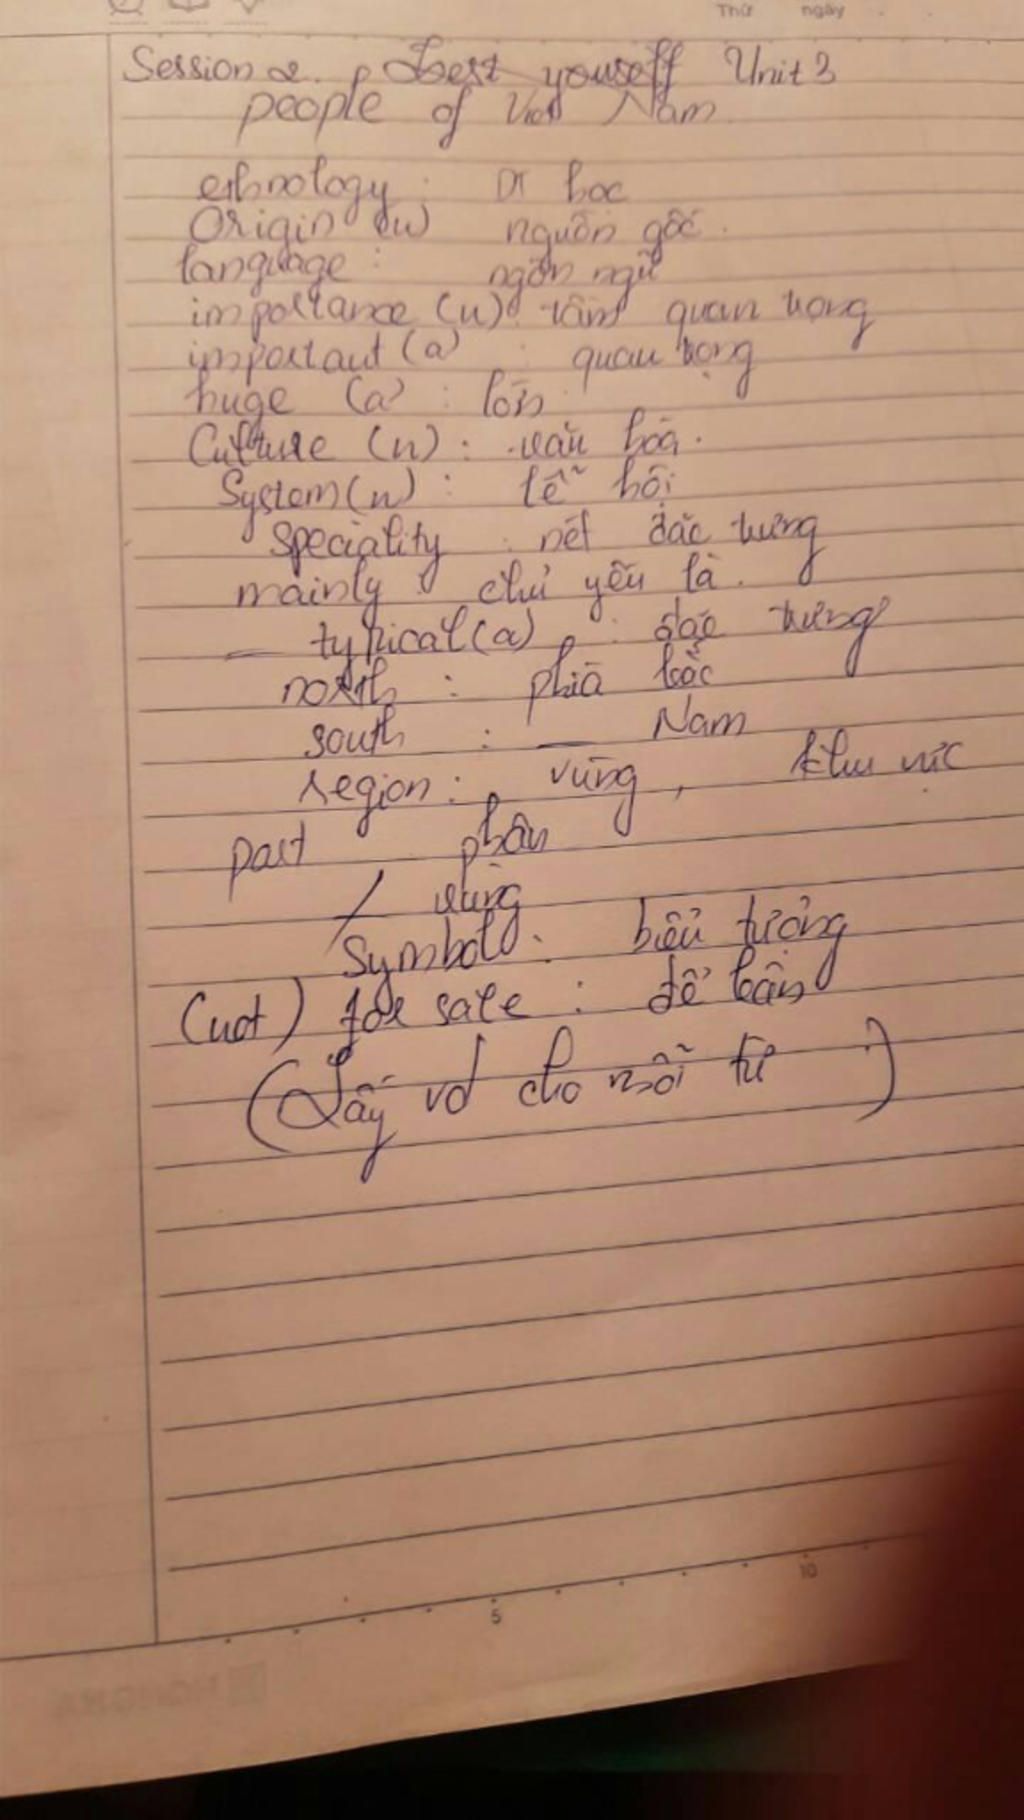 Thứ ngày
Session 2. Test yourself Unit 3
people of Viet Nam
ethnology : DT học
Origin (n) nguồn gốc.
language : ngôn ngữ
importance (n) : tầm quan trọng
important (a) : quan trọng
huge (a) : lớn
Culture (n) : văn hóa.
System (n) : lễ hội
speciality : nét đặc trưng
mainly : chủ yếu là.
typical (a) : đặc trưng
north : phía bắc
south : — Nam
region : vùng, khu vực
part phần
/ vùng
Symbol : biểu tượng
(not) for sale : để bán
(Lấy vd cho mỗi từ :)
5 10